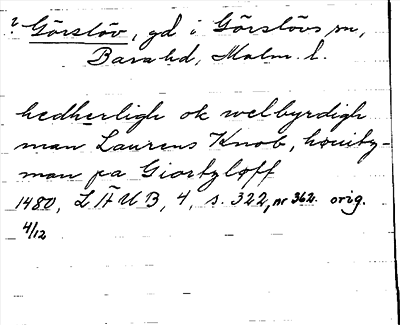 ? Görslöv, gd i Görslövs sn,
Bara hd, Malm. l.
hedherligh ok welbyrdigh
man Laurens Knob, høuitz-
man pa Giortzløff
1480, LÄUB, 4, s. 322, nr 362. orig.
4/12